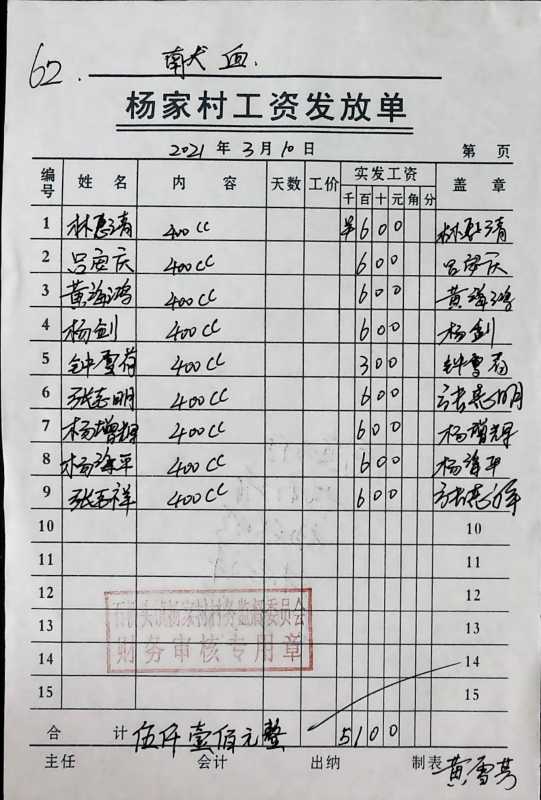 62.
献血
杨家村工资发放单
2021年3月10日 第 页
编号 姓名 内容 天数 工价 实发工资 盖章
千 百 十 元 角 分
1 林惠清 400CC ¥600 林惠清
2 吕安庆 400CC 600 吕安庆
3 黄海鸿 400CC 600 黄海鸿
4 杨剑 400CC 600 杨剑
5 钟雪荷 400CC 300 钟雪荷
6 张志明 400CC 600 张志明
7 杨增辉 400CC 600 杨增辉
8 杨海平 400CC 600 杨海平
9 张志祥 400CC 600 张志祥
10 10
11 11
12 12
13 13
14 14
15 15
杨家村村务监督委员会
财务审核专用章
合计 伍仟壹佰元整 5100
主任 会计 出纳 制表 黄雪芎